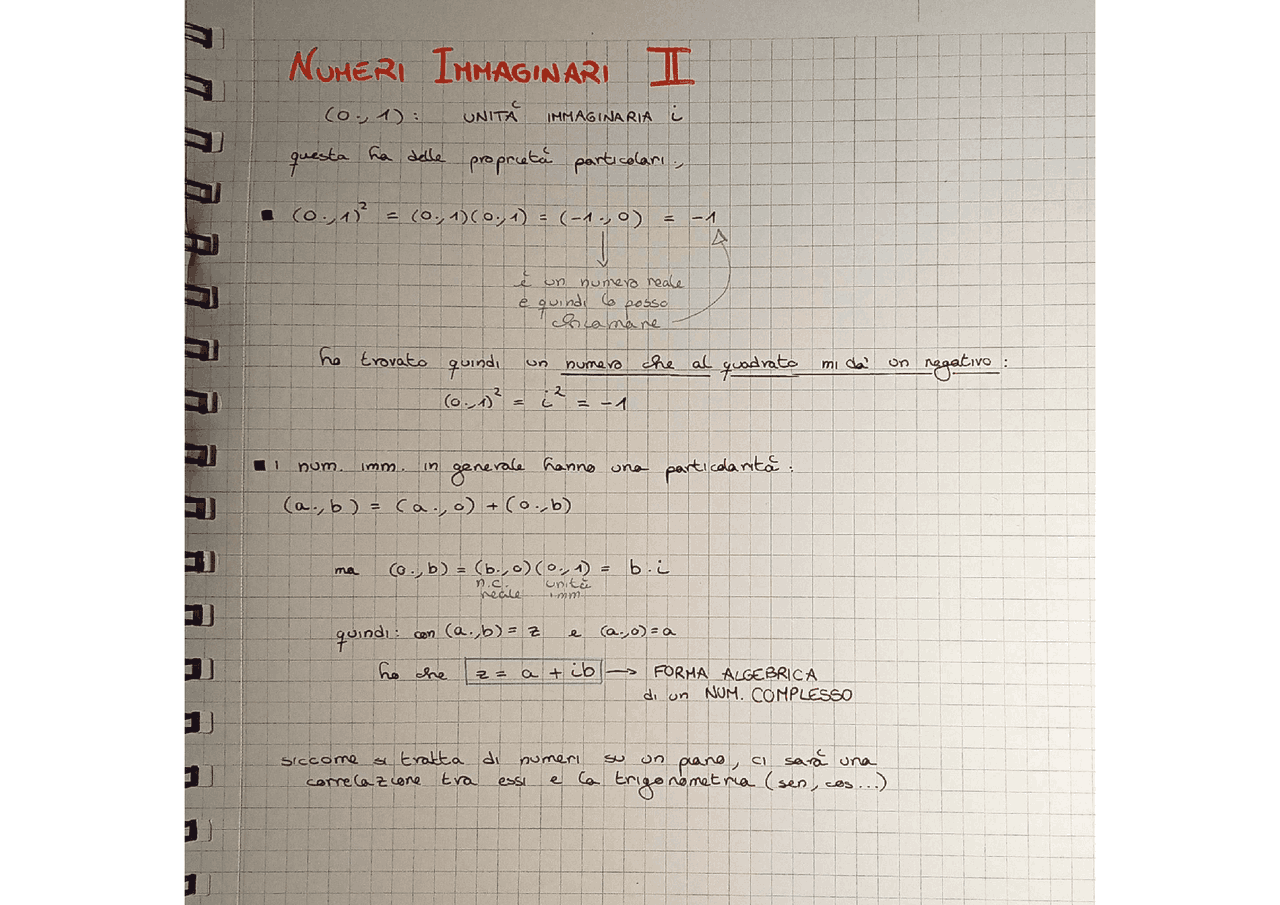 NUMERI IMMAGINARI II
(0.,1): UNITÀ IMMAGINARIA i
questa ha delle proprietà particolari.,
▪ (0.,1)² = (0.,1)(0.,1) = (-1.,0) = -1
è un numero reale
e quindi lo posso
chiamare
ho trovato quindi un numero che al quadrato mi dà un negativo:
(0.,1)² = i² = -1
▪ i num. imm. in generale hanno una particolarità:
(a.,b) = (a.,0) + (0.,b)
ma (0.,b) = (b.,0)(0.,1) = b.i
n.c. unità
reale imm
quindi: con (a.,b) = z e (a.,0) = a
ho che z = a + ib → FORMA ALGEBRICA
di un NUM. COMPLESSO
siccome si tratta di numeri su un piano, ci sarà una
correlazione tra essi e la trigonometria (sen, cos...)